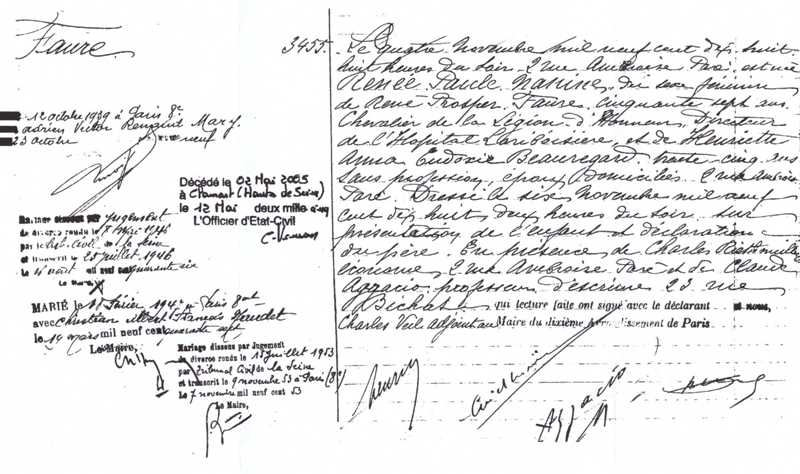 Faure
3455.
Le quatre Novembre mil neuf cent dix huit
huit heures du soir 2 rue Ambroise Paré est née
Renée Paule Nanine, du sexe féminin
de René Prosper Faure, cinquante sept ans
Chevalier de la Légion d'Honneur, Directeur
de l'Hopital Lariboisière, et de Henriette
Anna Eudoxie Beauregard, trente cinq ans
sans profession, époux domiciliés 2 rue Ambroise
Paré. Dressé le six Novembre mil neuf
cent dix huit heures du soir, sur
présentation de l'enfant et déclaration
du père. En présence de Charles
économe, 2 rue Ambroise Paré et de Claude
professeur d'escrime 23 rue
Bichat qui lecture faite ont signé avec le déclarant et nous,
Charles Veil adjoint au Maire du dixième Arrondissement de Paris.
12 octobre 1939 à Paris 8e
Adrien Victor Renaud Mary
23 octobre neuf
Décédé le 02 Mai 2005
à Clamart (Hauts de Seine)
le 12 Mai deux mille cinq
L'Officier d'Etat-Civil
Mariage dissous par Jugement
de divorce rendu le 8 Mai 1946
par le trib. Civil de la Seine
et transcrit le 25 juillet 1946
Le 4 août mil neuf quarante six
Le Maire,
MARIÉ le Février 194 Paris
avec Christian Albert François
le 19 mars
mil neuf cent quarante sept
Le Maire,
Mariage dissous par Jugement
de divorce rendu le 15 juillet 1953
par Tribunal Civil de la Seine
et transcrit le 9 novembre 53 à Paris (8e)
Le 7 novembre mil neuf cent 53
Le Maire,